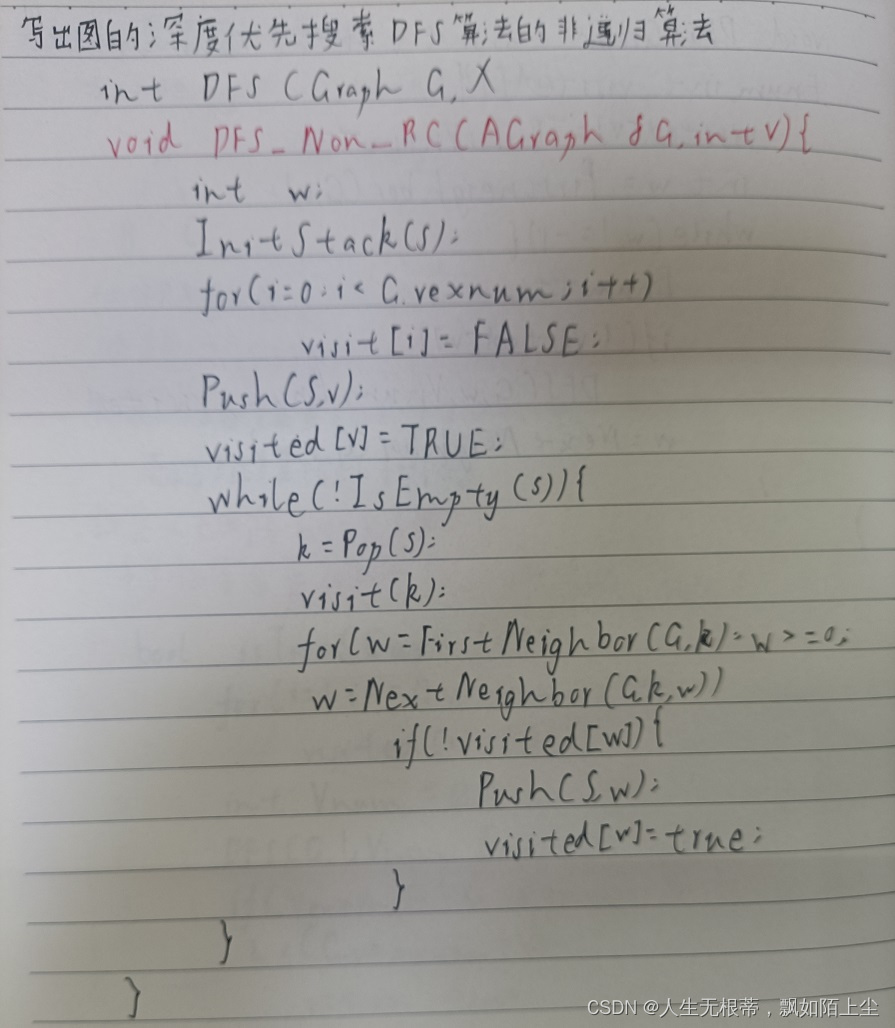 写出图的深度优先搜索 DFS 算法的非递归算法
int DFS (Graph G, X
void DFS_Non_RC(AGraph &G, int v){
int w;
InitStack(S);
for(i=0; i< G.vexnum; i++)
visit[i]= FALSE;
Push(S,v);
visited[v]= TRUE;
while(!IsEmpty(S)){
k=Pop(S);
visit(k);
for(w=FirstNeighbor(G,k); w>=0;
w=NextNeighbor(G,k,w))
if(!visited[w]){
Push(S,w);
visited[w]=true;
}
}
}
CSDN @人生无根蒂，飘如陌上尘